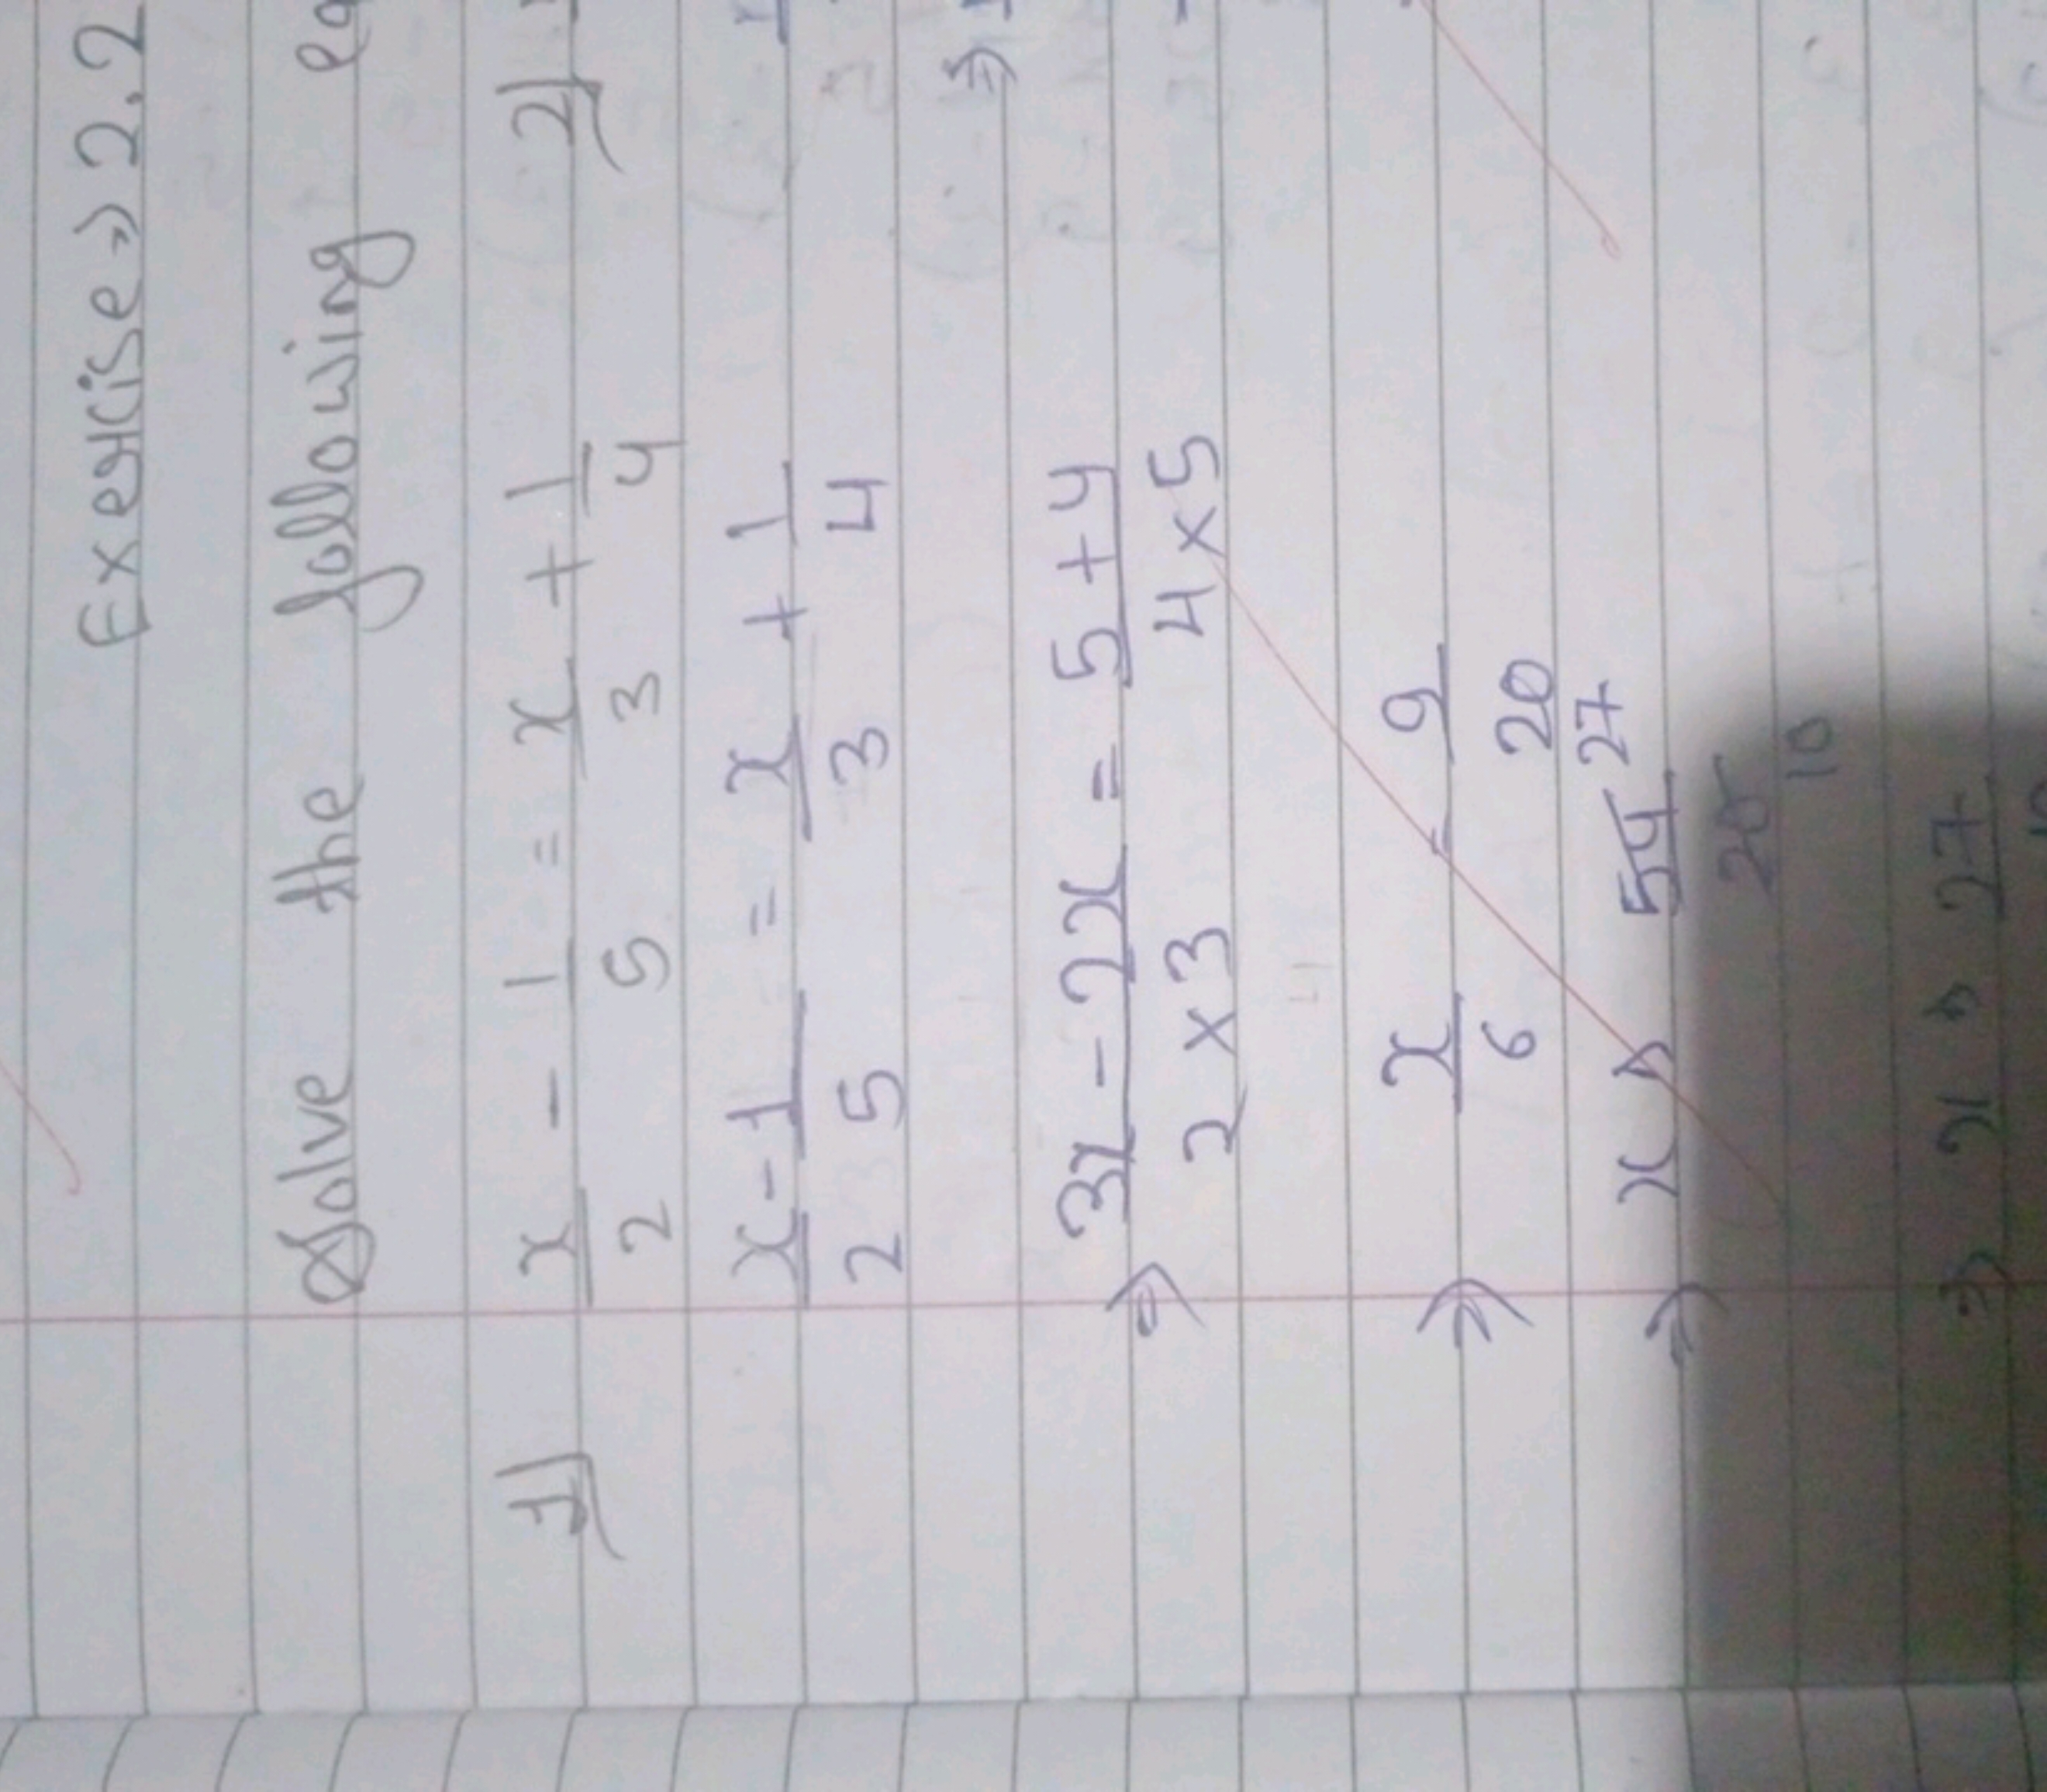 Exercise⇒ 2.2
Solve the following eq
1) x/2 - 1/5 = x/3 + 1/4 2)
x/2 - 1/5 = x/3 + 1/4
⇒ 3x - 2x / 2 × 3 = 5 + 4 / 4 × 5 ⇒
⇒ x/6 = 9/20
⇒ x ⇒ 54/20 27/10
⇒ x ⇒ 27/10